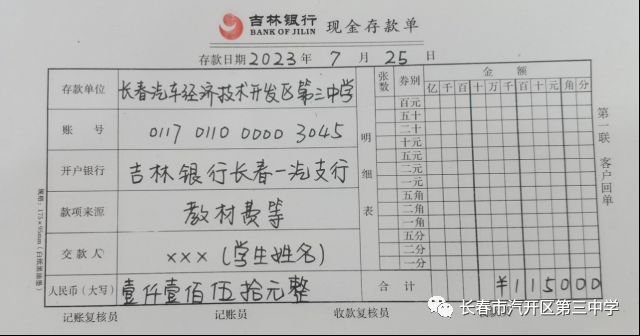 吉林银行
BANK OF JILIN
现金存款单
存款日期 2023 年 7 月 25 日
存款单位 长春汽车经济技术开发区第三中学
账号 0117 0110 0000 3045
开户银行 吉林银行长春一汽支行
款项来源 教材费等
交款人 ××× (学生姓名)
人民币(大写) 壹仟壹佰伍拾元整
明细表
张数 券别 金额
亿 千 百 十 万 千 百 十 元 角 分
百元
五十
二十
十元
五元
二元
一元
五角
二角
一角
五分
二分
一分
合计 ¥115000
第一联 客户回单
规格:175×95mm(白纸黑油墨)
记账复核员 记账员 收款复核员
长春市汽开区第三中学